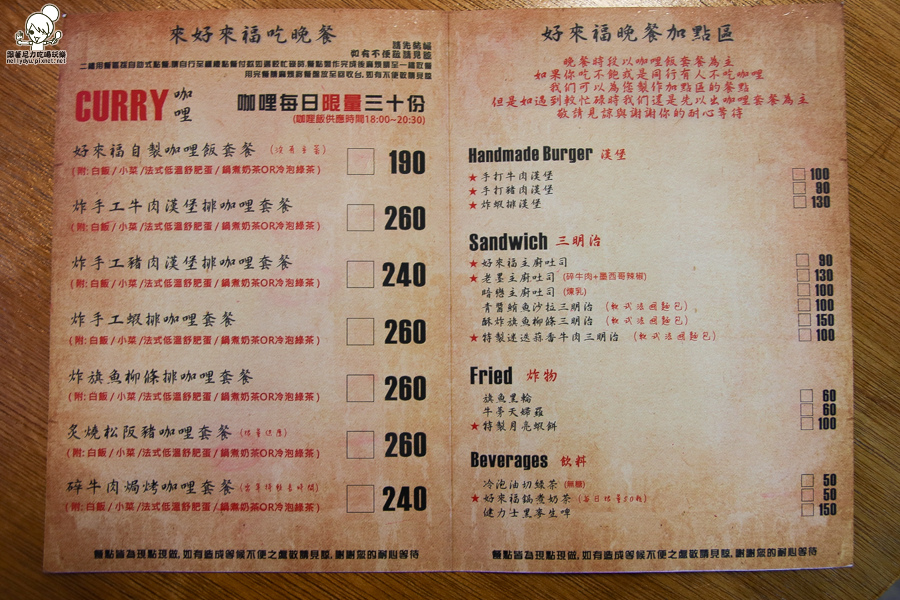 跟著尼力吃喝玩樂
nellydyu.pixnet.net
來好來福吃晚餐
請先結帳
如有不便敬請見諒
CURRY 咖哩
咖哩每日限量三十份
(咖哩飯供應時間18:00~20:30)
好來福自製咖哩飯套餐
190
(附: 白飯 / 小菜 /法式低溫舒肥蛋 / 鍋煮奶茶OR冷泡綠茶 )
炸手工牛肉漢堡排咖哩套餐
260
(附: 白飯 / 小菜 /法式低溫舒肥蛋 / 鍋煮奶茶OR冷泡綠茶 )
炸手工豬肉漢堡排咖哩套餐
240
(附: 白飯 / 小菜 /法式低溫舒肥蛋 / 鍋煮奶茶OR冷泡綠茶 )
炸手工蝦排咖哩套餐
260
(附: 白飯 / 小菜 /法式低溫舒肥蛋 / 鍋煮奶茶OR冷泡綠茶 )
炸旗魚柳條排咖哩套餐
260
(附: 白飯 / 小菜 /法式低溫舒肥蛋 / 鍋煮奶茶OR冷泡綠茶 )
炙燒松阪豬咖哩套餐 (限量供應)
260
(附: 白飯 / 小菜 /法式低溫舒肥蛋 / 鍋煮奶茶OR冷泡綠茶 )
碎牛肉焗烤咖哩套餐
240
(附: 白飯 / 小菜 /法式低溫舒肥蛋 / 鍋煮奶茶OR冷泡綠茶 )
餐點皆為現點現做, 如有造成等候不便之處敬請見諒, 謝謝您的耐心等待
好來福晚餐加點區
晚餐時段以咖哩飯套餐為主
如果你吃不飽或是同行有人不吃咖哩
我們可以為您製作加點區的餐點
但是如遇到較忙碌時我們還是先以出咖哩套餐為主
敬請見諒與謝謝你的耐心等待
Handmade Burger 漢堡
★手打牛肉漢堡 100
★手打豬肉漢堡 90
★炸蝦排漢堡 130
Sandwich 三明治
★好來福主廚吐司 90
★老墨主廚吐司 (碎牛肉+墨西哥辣椒) 130
暗戀主廚吐司 (煉乳) 100
青醬鮪魚沙拉三明治 (軟式法國麵包) 100
酥炸旗魚柳條三明治 (軟式法國麵包) 150
★特製迷迭蒜香牛肉三明治 (軟式法國麵包) 100
Fried 炸物
旗魚黑輪 60
牛蒡天婦羅 60
★特製月亮蝦餅 100
Beverages 飲料
冷泡油切綠茶 (無糖) 50
★好來福鍋煮奶茶 (每日限量50瓶) 50
健力士黑麥生啤 150
餐點皆為現點現做, 如有造成等候不便之處敬請見諒, 謝謝您的耐心等待